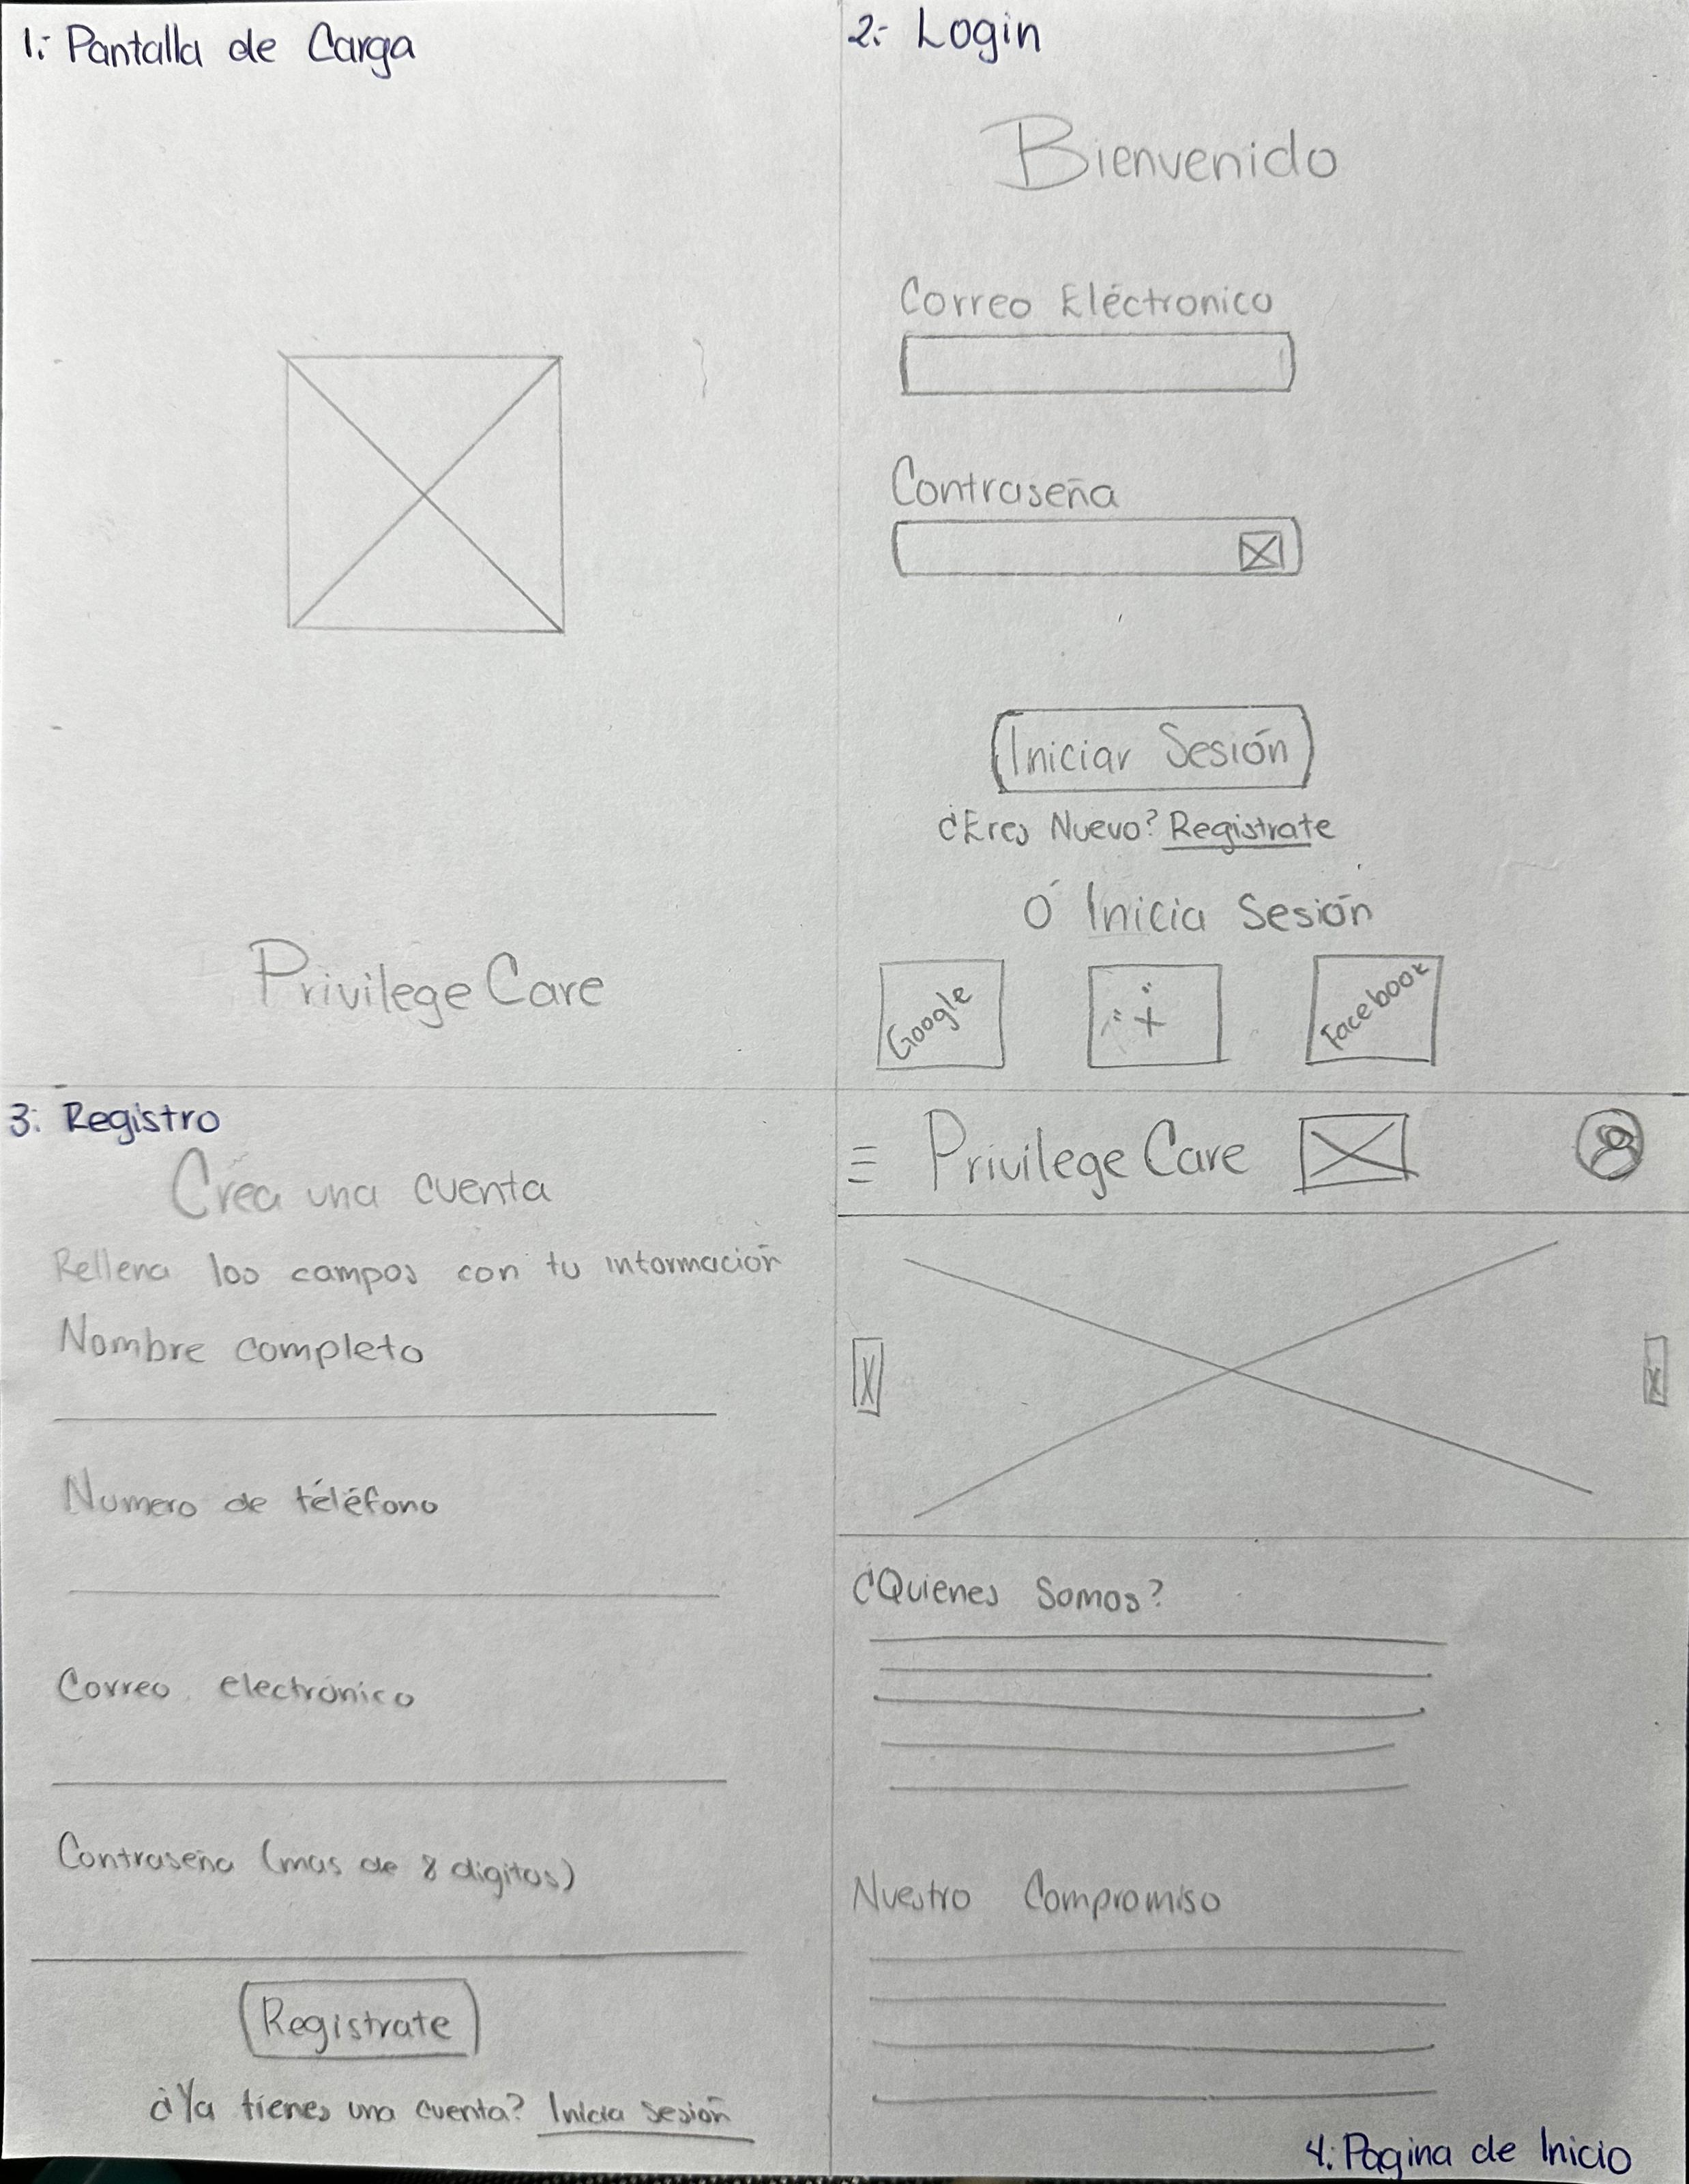 1.- Pantalla de Carga
Privilege Care
2.- Login
Bienvenido
Correo Eléctronico
Contraseña
Iniciar Sesión
¿Eres Nuevo? Registrate
Ó Inicia Sesión
Google
"x"
Facebook
3. Registro
Crea una cuenta
Rellena los campos con tu información
Nombre completo
Numero de téléfono
Correo electrónico
Contraseña (mas de 8 digitos)
Registrate
¿Ya tienes una cuenta? Inicia sesión
Privilege Care
¿Quienes Somos?
Nuestro Compromiso
4. Pagina de Inicio